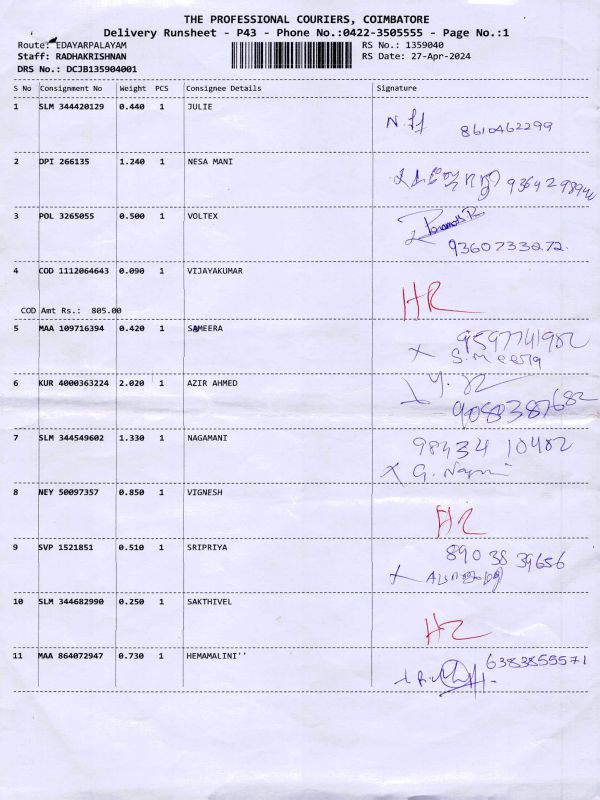 THE PROFESSIONAL COURIERS, COIMBATORE
Delivery Runsheet - P43 - Phone No.:0422-3505555 - Page No.:1
Route: EDAYARPALAYAM RS No.: 1359040
Staff: RADHAKRISHNAN RS Date: 27-Apr-2024
DRS No.: DCJB135904001
S No Consignment No Weight PCS Consignee Details Signature
1 SLM 344420129 0.440 1 JULIE
8610462299
2 DPI 266135 1.240 1 NESA MANI
3 POL 3265055 0.500 1 VOLTEX
9360733272.
4 COD 1112064643 0.090 1 VIJAYAKUMAR
HR
COD Amt Rs.: 805.00
5 MAA 109716394 0.420 1 SAMEERA
9597741982
x S.Meera
6 KUR 4000363224 2.020 1 AZIR AHMED
9088387682
7 SLM 344549602 1.330 1 NAGAMANI
98434 10482
x G. Nagmi
8 NEY 50097357 0.850 1 VIGNESH
HR
9 SVP 1521851 0.510 1 SRIPRIYA
89038 39656
10 SLM 344682990 0.250 1 SAKTHIVEL
HR
11 MAA 864072947 0.730 1 HEMAMALINI''
6383855571